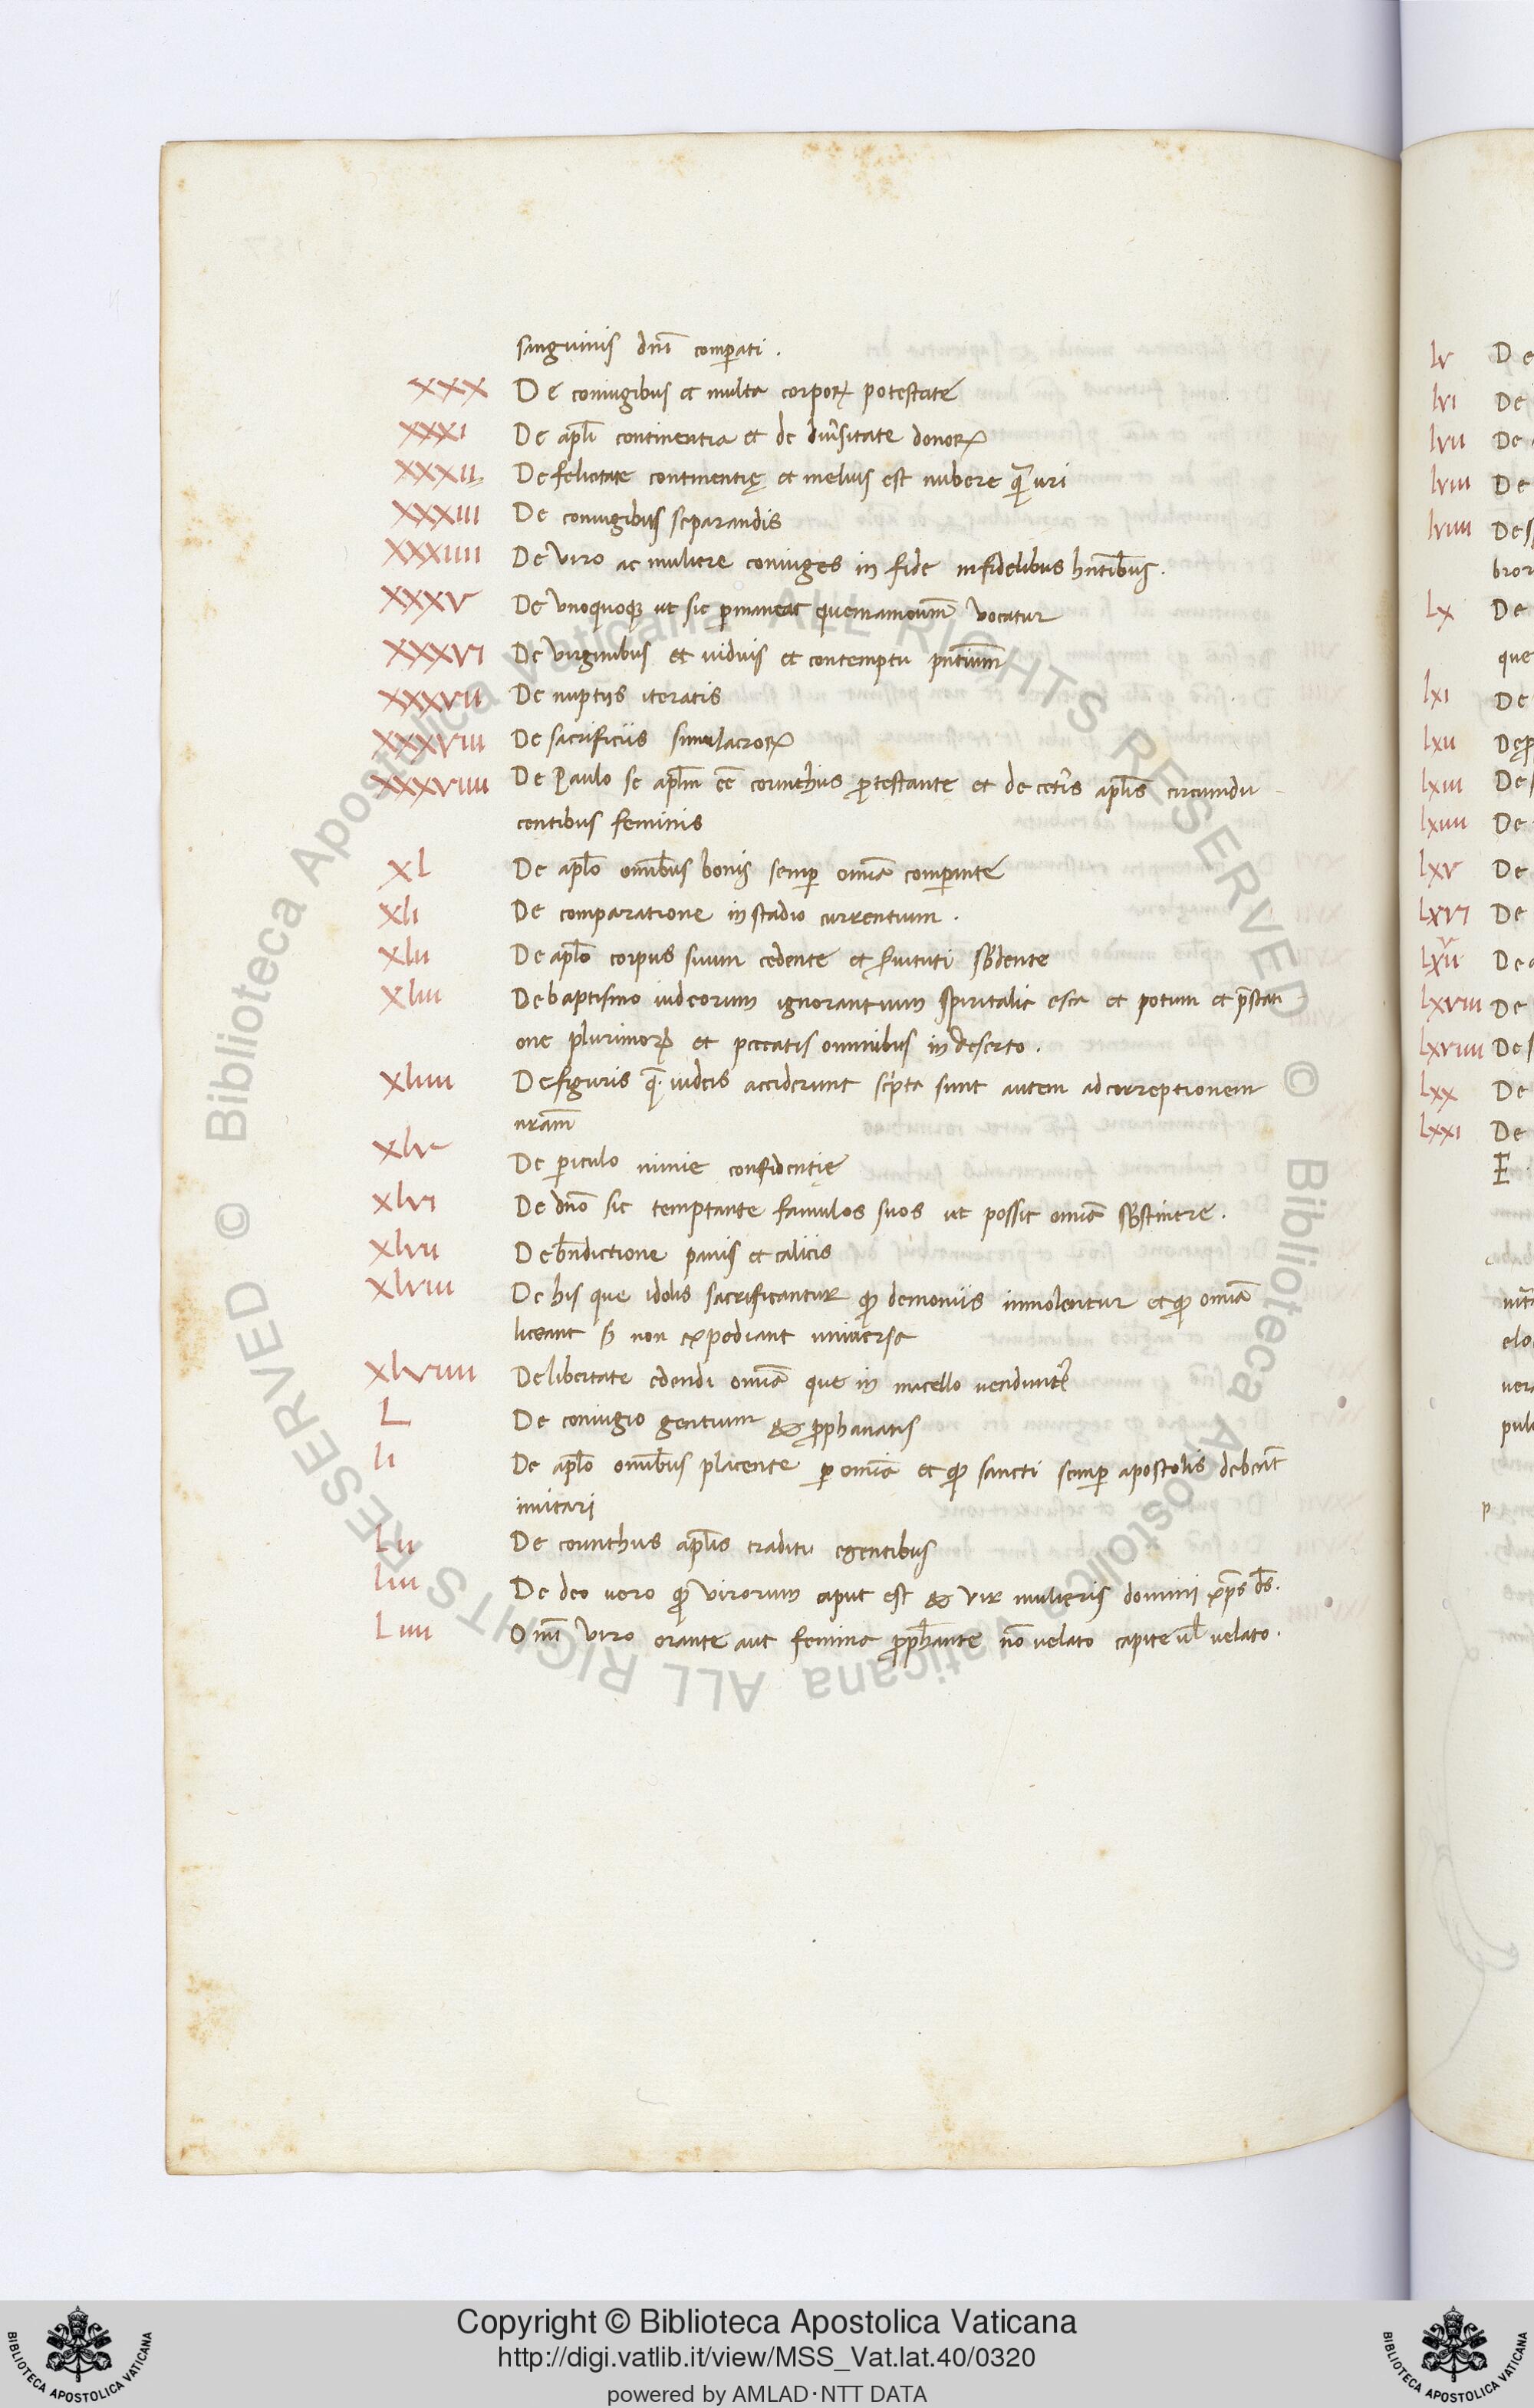 sanguinis dnī comparati .
XXX De coniugibus et multa corporꝝ potestate
XXXI De apłi continentia et de diuersitate donorꝝ
XXXII De felicitate continentię et melius est nubere quã uri
XXXIII De coniugibus separandis
XXXIIII De viro ac muliere coniuges in fide infidelibus hñtibus .
XXXV De vnoquoqꝫ ut sic permaneat quemamoum̃ vocatur
XXXVI De virginibus et uiduis et contemptu pñtium̃
XXXVII De nuptijs iteratis
XXXVIII De sacrificiis simulacrorꝝ
XXXVIIII De Paulo se apłm eē corinthiis ꝓtestante et de ceteris apłis circumdu
centibus feminis
Xl De apło omĩbus bonis semꝑ omĩa comparante
Xli De comparatione in stadio currentium .
Xlii De apło corpus suum cedente et seruituti
Xliii De baptismo iudeorum ignorantium spiritalic esca et potum et
one plurimorꝝ et peccatis omnibus in deserto .
Xliiii De figuris q̃ iudeis acciderunt scripta sunt autem ad correptionem
nram̃
Xlv De periculo nimie confidentię
Xlvi De dño sic temptante famulos suos ut possit omĩa sustinere .
Xlvii De bñdictione panis et calicis
Xlviii De his que idolis sacrificantur quod demoniis immolentur et quod omĩa
liceant sed non expediant uniuersa
Xlviiii De libertate edendi omĩa que in macello ueniduntur
L De coniugio gentium & prophanatis
li De apło omĩbus placente per omĩa et quod sancti semꝑ apostolis debeãt
imitari
Lii De corinthiis apłis traditu egentibus
liii De deo uero quod virorum caput est & vir mulieris domini xp̃s d̃s .
Liiii Omĩ viro orante aut femina prophante nõ uelato capite uł uelato .
lv De
lvi De
lvii De
lviii De
lviiii De s
bror
Lx De
que
lxi De
lxii De
lxiii De s
lxiiii De
lxv De
lxvi De
lxvii De
lxviii De
lxviiii De s
Lxx De
Lxxi De
E
elo
uer
pul
Copyright © Biblioteca Apostolica Vaticana
http://digi.vatlib.it/view/MSS_Vat.lat.40/0320
powered by AMLAD·NTT DATA
BIBLIOTECA APOSTOLICA VATICANA
BIBLIOTECA APOSTOLICA VATICANA
© Biblioteca Apostolica Vaticana ALL RIGHTS RESERVED © Biblioteca Apostolica Vaticana ALL RIGHTS RESERVED